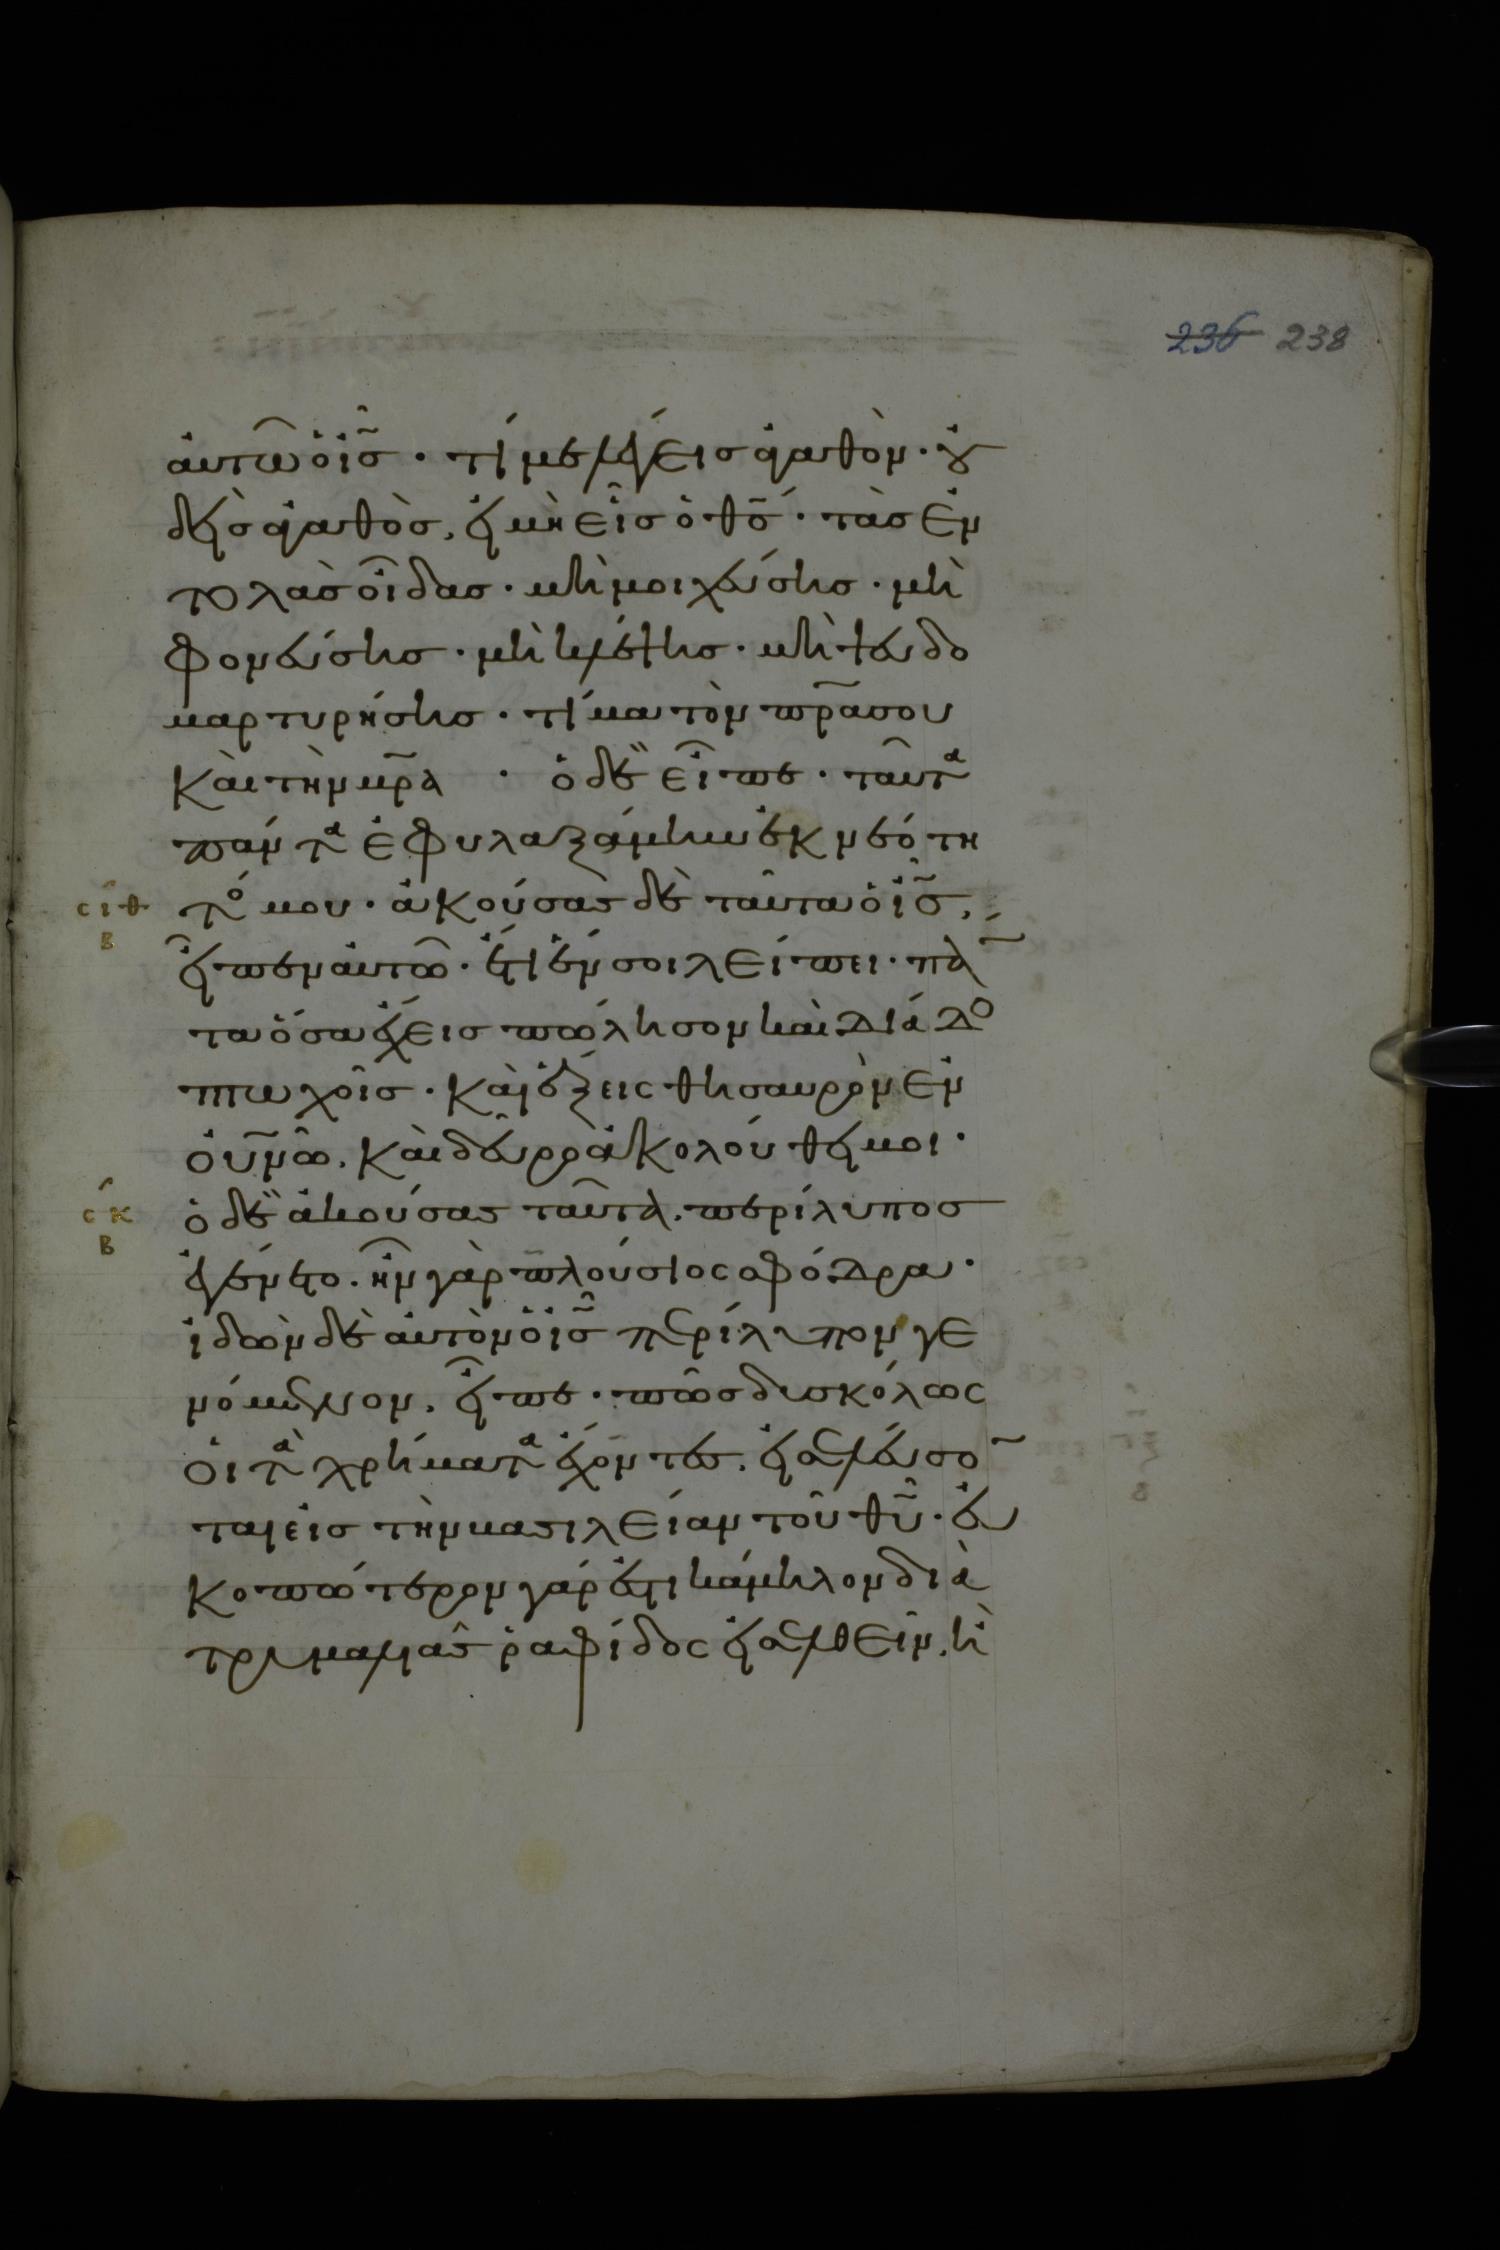 236 238
αὐτῶ ὁ ἰ̅ς̅ · τί με λέγεις ἀγαθὸν · οὐ
δεὶς ἀγαθὸς, εἰ μὴ εἷς ὁ θ̅ς̅ · τὰς ἐν
τολὰς οἶδας · μὴ μοιχεύσης · μὴ
φονεύσης · μὴ κλέψης · μὴ ψευδο
μαρτυρήσης · τίμα τὸν π̅ρ̅α σου
καὶ τὴν μ̅ρ̅α · ὁ δὲ εἶπε · ταῦτα
πάντα ἐφυλαξάμην ἐκ νεότη
τό μου · ἀκούσας δὲ ταῦτα ὁ ἰ̅ς̅,
εἶπεν αὐτῶ · ἔτι ἕν σοι λείπει · πά̅
τα ὅσα ἔχεις πώλησον καὶ διάδο
πτωχοῖς · καὶ ἕξεις θησαυρὸν ἐν
οὐ̅ν̅ῶ, καὶ δεῦρο ἀκολούθει μοι ·
ὁ δὲ ἀκούσας ταῦτα, περίλυπος
ἐγένετο. ἦν γὰρ πλούσιος σφόδρα ·
ἰδὼν δὲ αὐτὸν ὁ ἰ̅ς̅ περίλυπον γε
νόμενον, εἶπε · πῶς δυσκόλως
οἱ τὰ χρήματα ἔχοντες, εἰσελεύσο̅
ται εἰς τὴν βασιλείαν τοῦ θ̅υ̅ · εὐ
κοπώτερον γάρ ἐστι κάμηλον διὰ
τρυμαλιᾶς ῥαφίδος εἰσελθεῖν, ἢ
σιθ
β
σκ
β